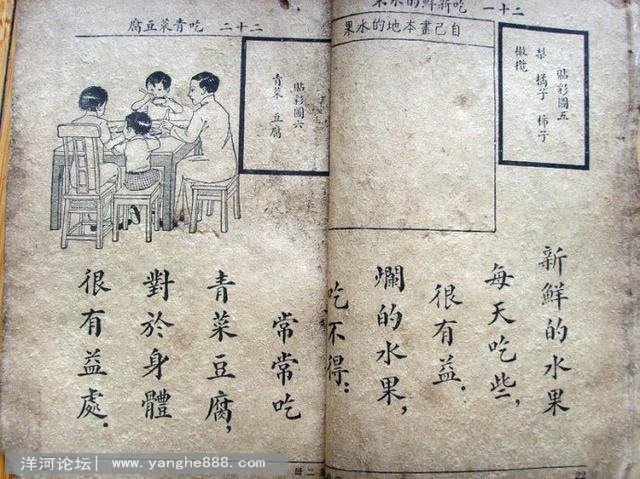 二十一 吃新鮮的水果
貼彩圖五
梨 橘子 柿子
橄欖
自己畫本地的水果
新鮮的水果
每天吃些,
很有益.
爛的水果,
吃不得.
22
二十二 吃青菜豆腐
貼彩圖六
青菜 豆腐
常常吃
青菜豆腐,
對於身體
很有益處.
洋河论坛| www.yanghe888.com